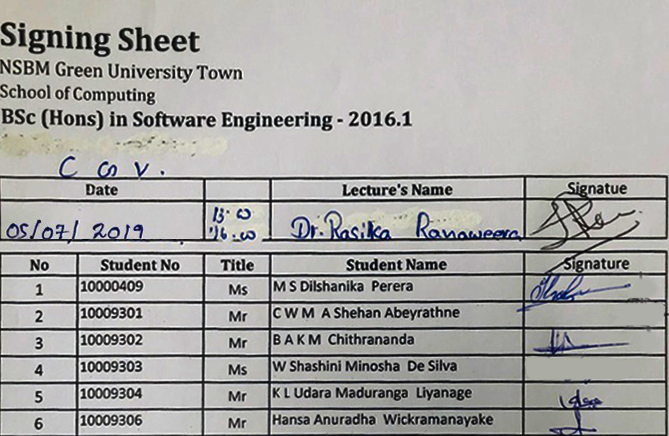 Signing Sheet
NSBM Green University Town
School of Computing
BSc (Hons) in Software Engineering - 2016.1
C G V.
Date Lecture's Name Signatue
05/07/2019 13.00 Dr. Rasika Ranaweera
16.00
No Student No Title Student Name Signature
1 10000409 Ms M S Dilshanika Perera
2 10009301 Mr C W M A Shehan Abeyrathne
3 10009302 Mr B A K M Chithrananda
4 10009303 Ms W Shashini Minosha De Silva
5 10009304 Mr K L Udara Maduranga Liyanage
6 10009306 Mr Hansa Anuradha Wickramanayake